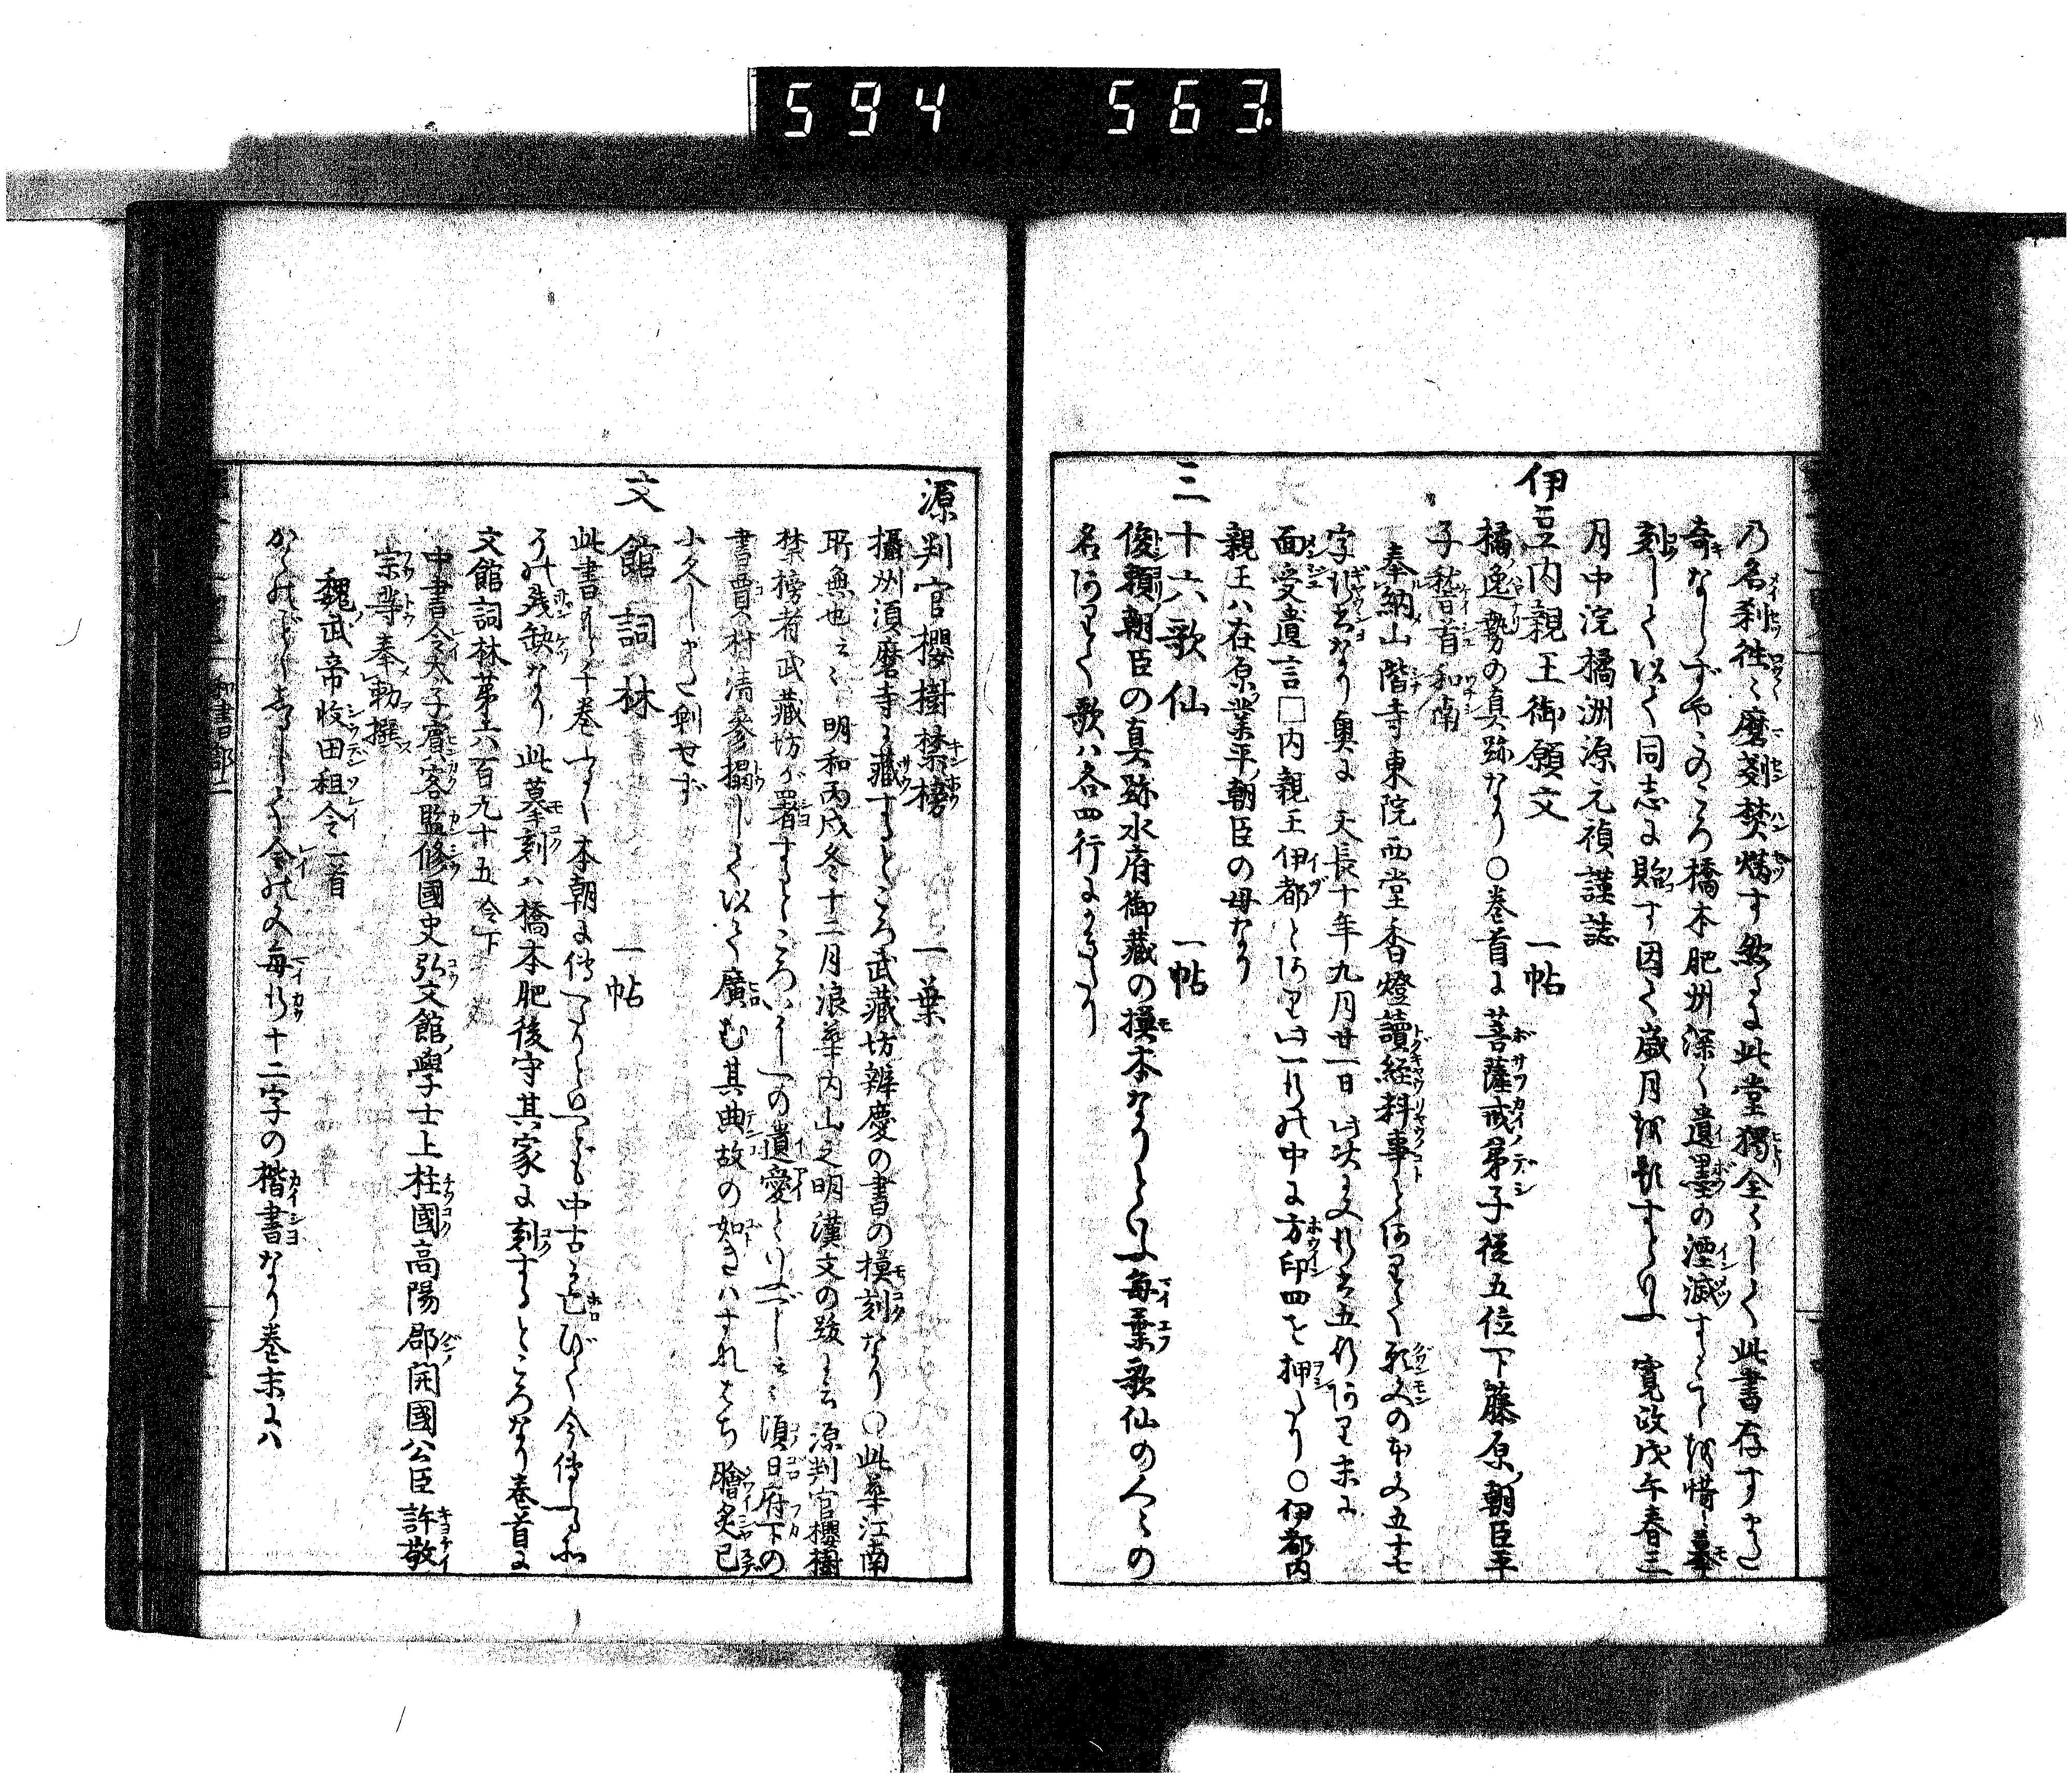 594 563.
乃名刹往々磨刻焚燬す然るに此堂獨全くして此書存すまた
奇ならずやこのころ橋本肥州深く遺墨の湮滅することを惜ミ摹
刻して以て同志に貽す因て歳月を影すといふ 寛政戊午春三
月中浣橘洲源元禎謹誌
伊豆内親王御願文 一帖
橘逸勢の真跡なり○巻首に菩薩戒弟子従五位下藤原朝臣平
子嵆首和南
奉納山階寺東院西堂香燈讀経料事とありて願文の本文五十七
字行書なり奥に天長十年九月廿一日此次文行書五行あり末に
面受遺言□内親王伊都とあり此一行の中に方印四を押たり○伊都内
親王ハ在原業平朝臣の母なり
三十六歌仙 一帖
俊頼朝臣の真跡水府御蔵の摸本なりといふ毎葉歌仙の人々の
名ありて歌ハ各四行にかきたり
源判官櫻樹禁榜 一葉
攝州須磨寺に蔵するところ武蔵坊辨慶の書の摸刻なり○此華江南
所無也云々明和丙戌冬十二月浪華内山之明漢文の跋に云源判官櫻樹
禁榜者武蔵坊が署するところにして一の遺愛といふべし云々須日府下の
書賈木村清参搨して以て廣む其典故の如きハすなはち膾炙已
に久しまた剰せず
文館詞林 一帖
此書もと千巻ありて本朝に傳へたりといへども中古に亡びて今傳へるハ
その残缺なり此摹刻ハ橋本肥後守其家に刻するところなり巻首に
文館詞林第六百九十五 令下
中書令太子賓客監修國史弘文館學士上柱國高陽郡開國公臣許敬
宗等奉勅撰
魏武帝收田租令一首
かくのごとく書して令の文毎行十二字の楷書なり巻末にハ